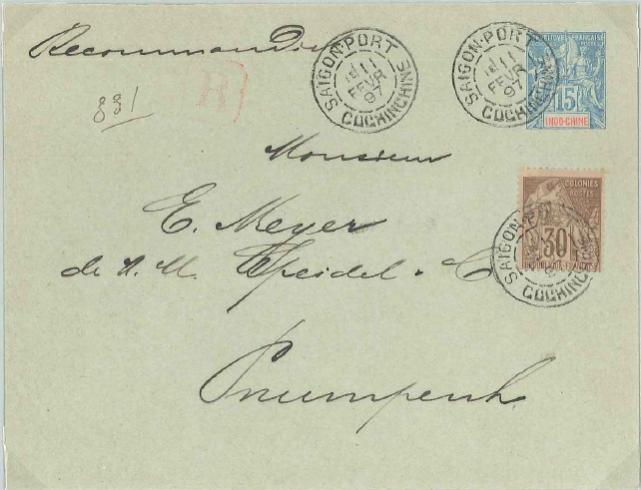 Recommandée
SAIGON-PORT
11
FEVR
97
COCHINCHINE
SAIGON-PORT
11
FEVR
97
COCHINCHINE
POSTES
15
INDO-CHINE
R
881
Monsieur
COLONIES
POSTES
30
SAIGON-PORT
COCHINCHINE
E. Meyer
de M. M. Speidel & C
Pnumpenh